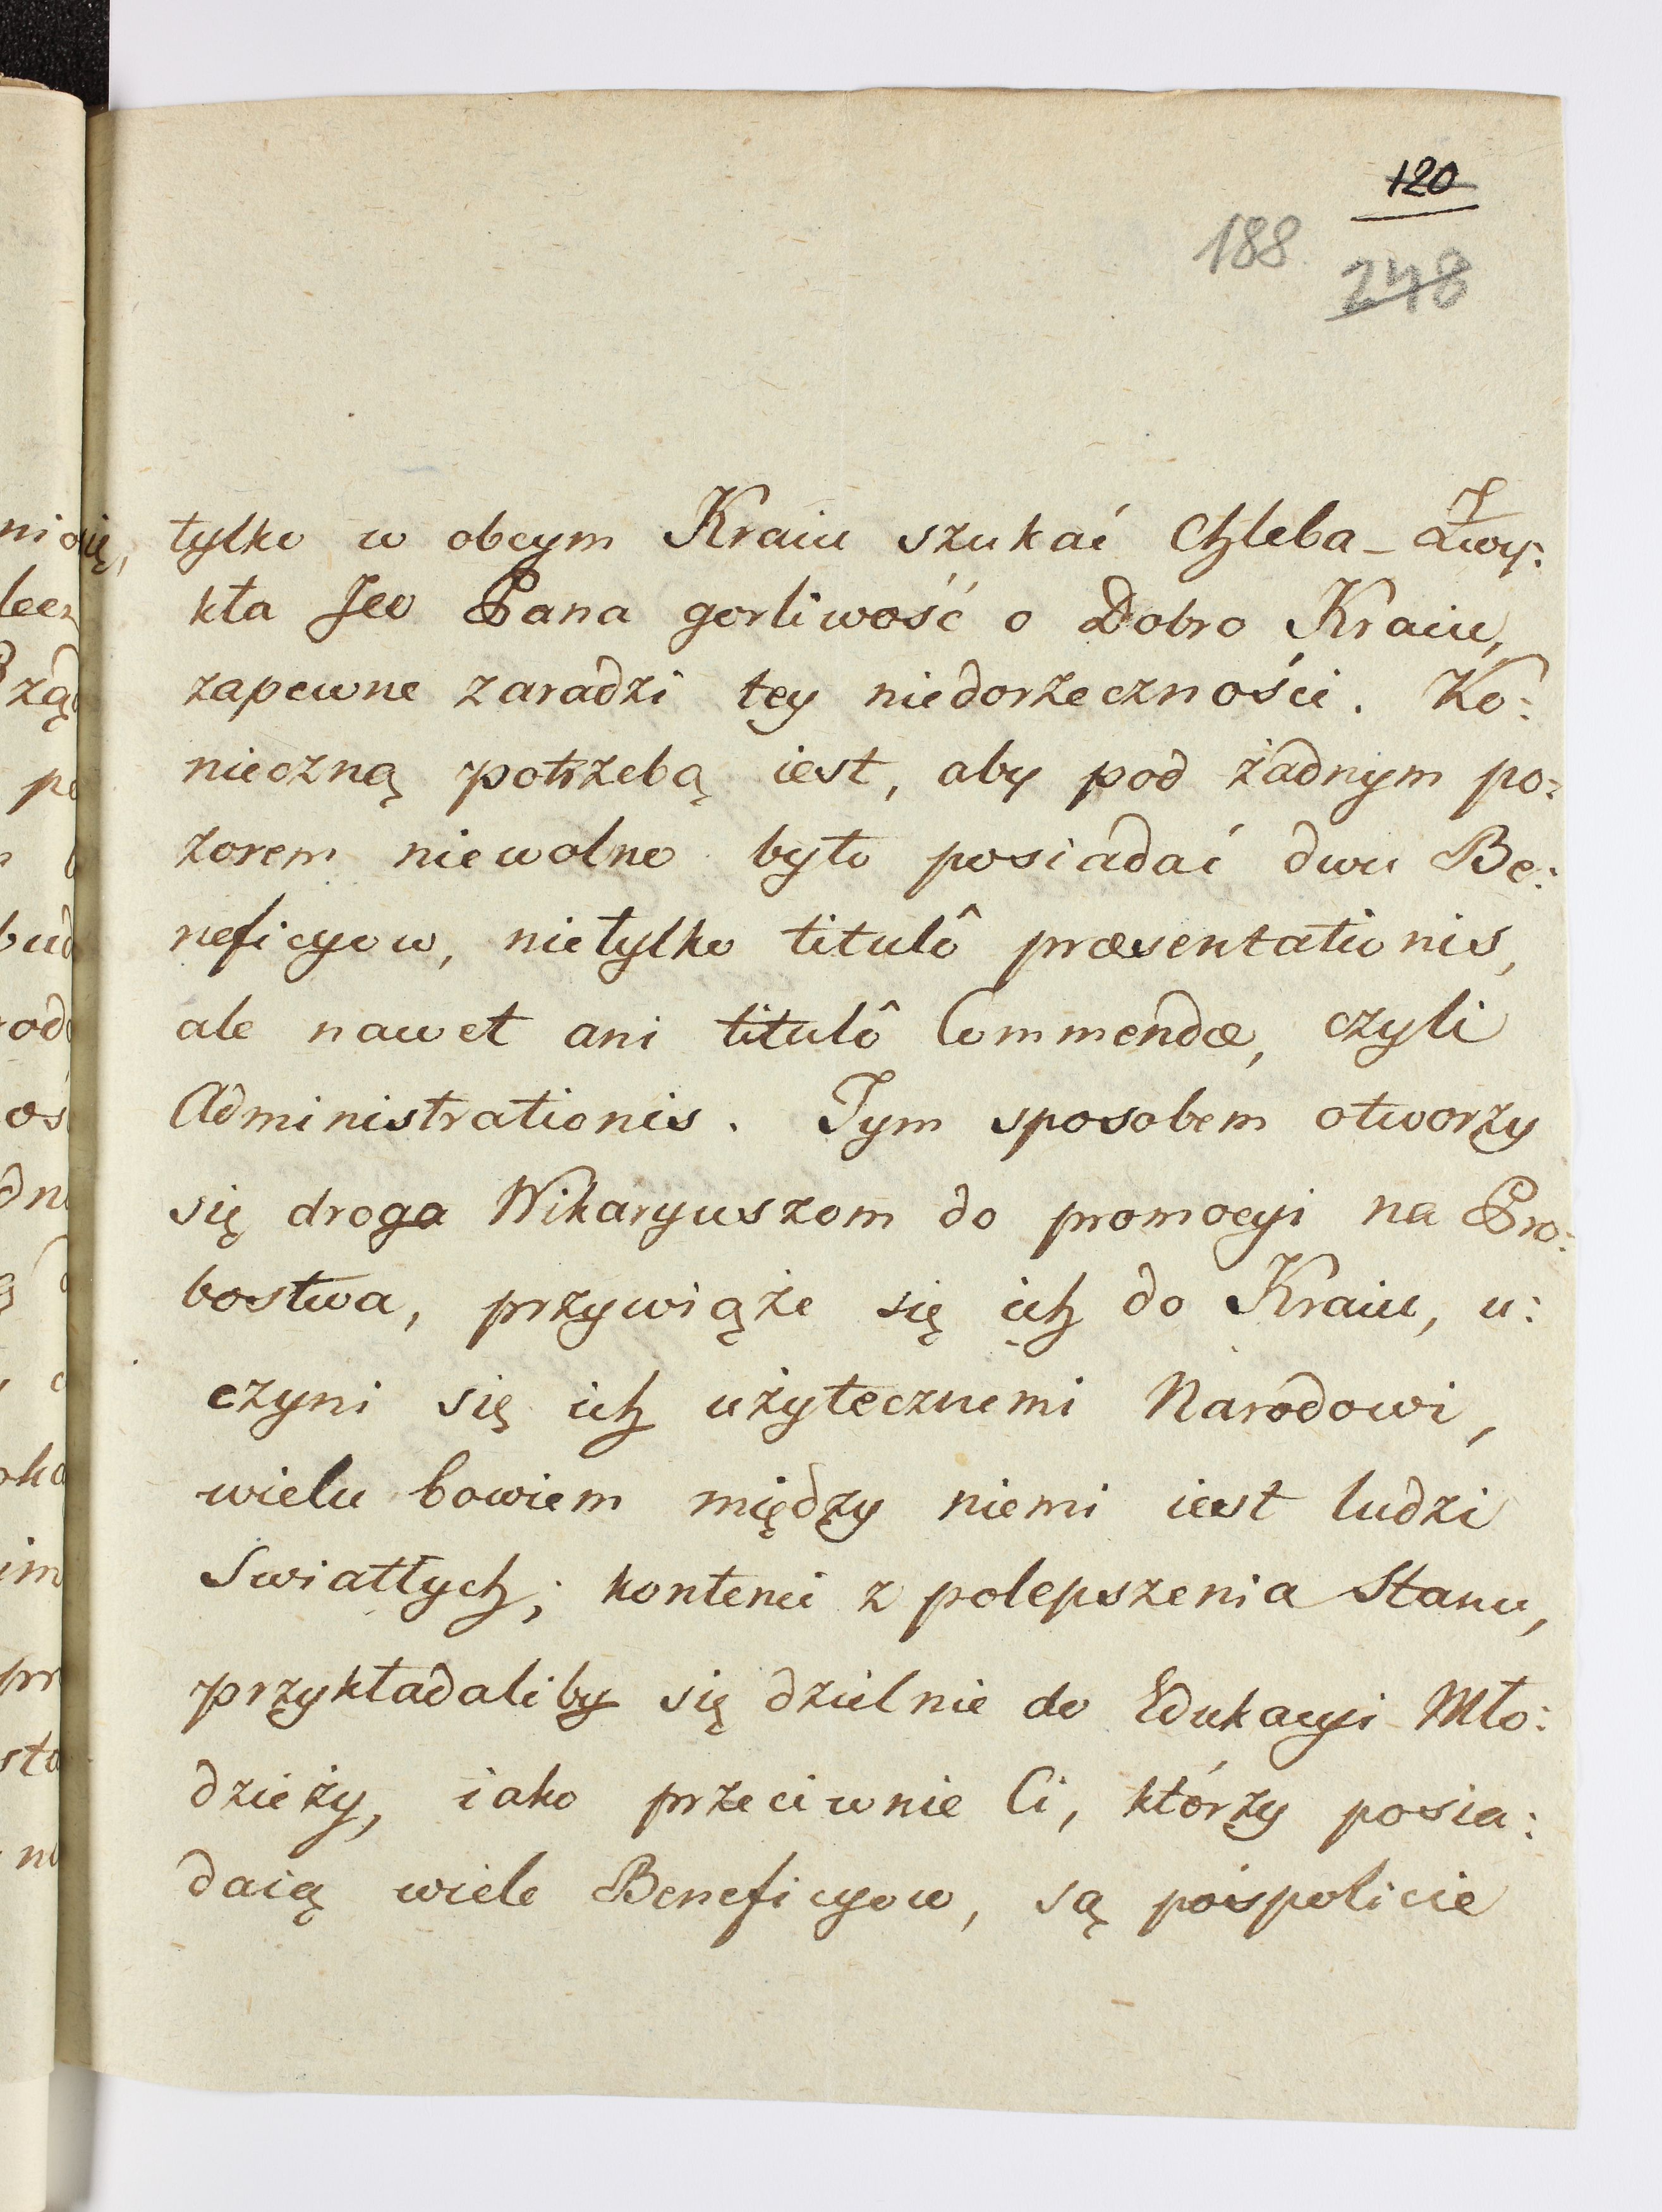 120
188 248
tylko w obcym Kraiu szukać Chleba - Zwy:
kła Jeo Pana gorliwość o Dobro Kraiu,
zapewne zaradzi tey niedorzeczności. Ko:
nieczną potrzebą iest, aby pod żadnym po:
zorem niewolno było posiadać dwu Be:
neficyow, nietylko titulô præsentationis,
ale nawet ani titulô Commendæ, czyli
Administrationis. Tym sposobem otworzy
się droga Wikaryuszom do promocyi na Pro:
bostwa, przywiąże się ich do Kraiu, u:
czyni się ich użytecznemi Narodowi,
wielu bowiem między niemi iest ludzi
Swiatłych; kontenci z polepszenia Stanu,
przykładaliby się dzielnie do Edukacyi Mło:
dzieży, iako przeciwnie Ci, którzy posia:
daią wiele Beneficyow, są pospolicie